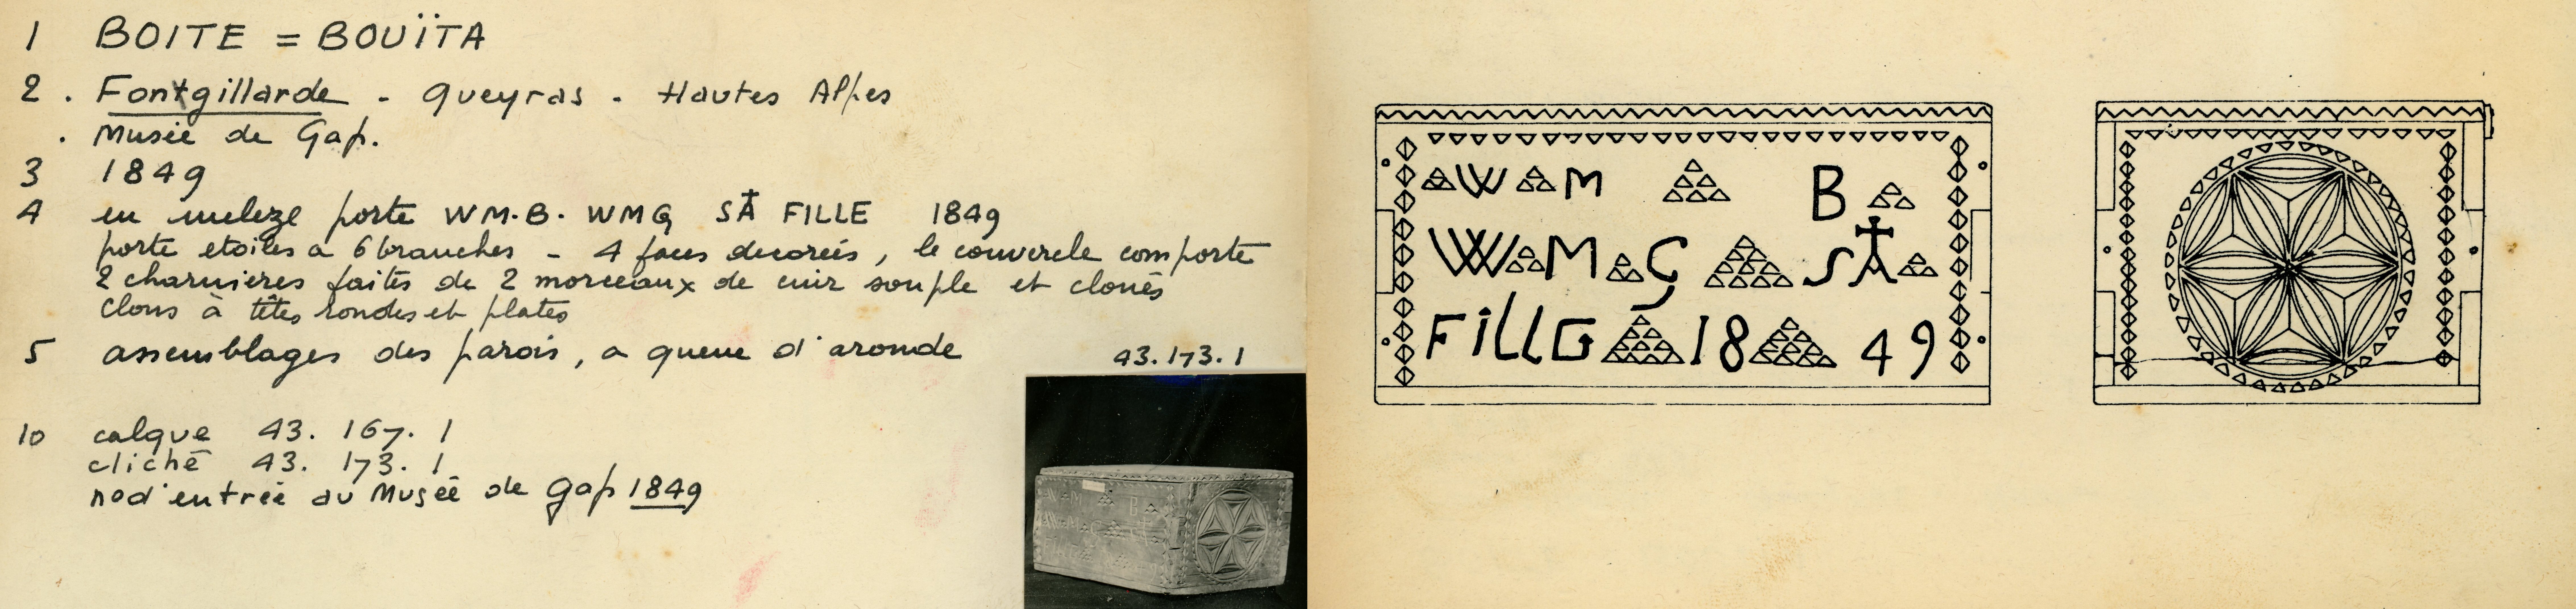 1 BOITE = BOUÏTA
2 . Fontgillarde - Queyras - Hautes Alpes
. Musée de Gap.
3 1849
4 en meleze porte WM.B. WMG SA FILLE 1849
porte etoiles à 6 branches - 4 faces decorées, le couvercle comporte
2 charnieres faites de 2 morceaux de cuir souple et cloués
clous à têtes rondes et plates
5 assemblages des parois, a queue d'aronde
43.173.1
10 calque 43. 167. 1
cliché 43. 173. 1
no d'entrée au Musée de Gap 1849
WM B
WMG SA
FiLLG 18 49